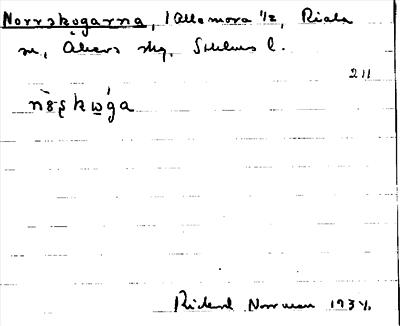 Norrskogarna, 1 Allmora 1/2, Riala
sn, Åkers skg, Sthlms l.
211
Rickard Norrman 1934.